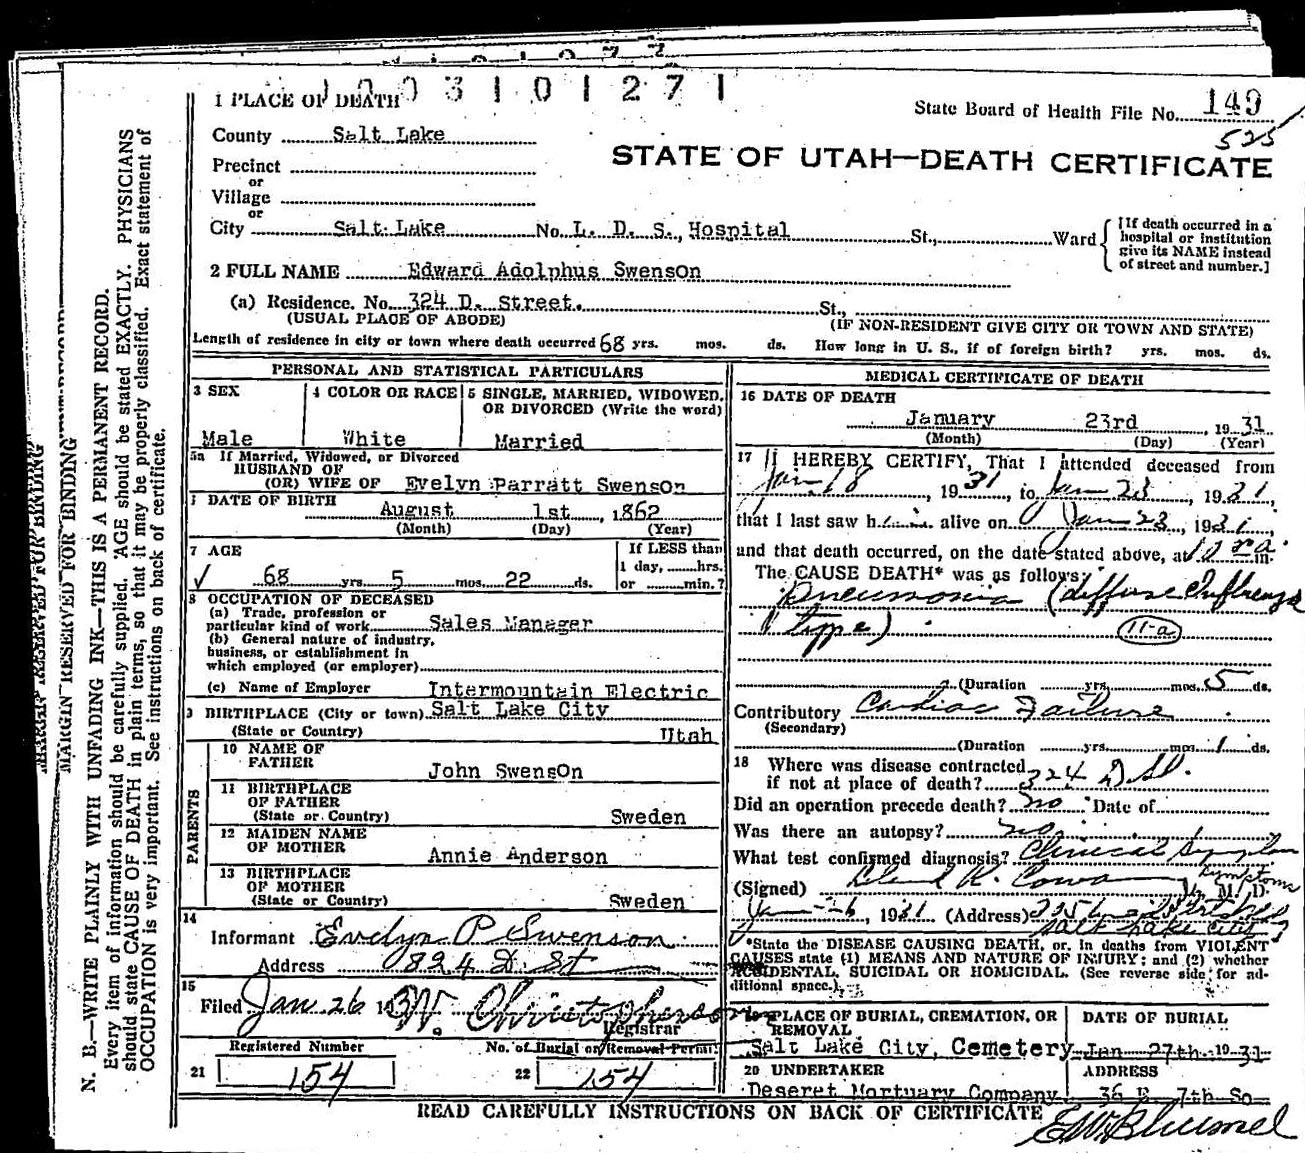 1 0 0 3 1 0 1 2 7 1
1 PLACE OF DEATH
State Board of Health File No. 149
525
County Salt Lake
STATE OF UTAH—DEATH CERTIFICATE
Precinct
or
Village
or
City Salt Lake No. L. D. S., Hospital St., Ward
[If death occurred in a hospital or institution give its NAME instead of street and number.]
2 FULL NAME Edward Adolphus Swenson
(a) Residence. No. 324 D. Street. St.,
(USUAL PLACE OF ABODE) (IF NON-RESIDENT GIVE CITY OR TOWN AND STATE)
Length of residence in city or town where death occurred 68 yrs. mos. ds. How long in U. S., if of foreign birth? yrs. mos. ds.
PERSONAL AND STATISTICAL PARTICULARS
3 SEX
Male
4 COLOR OR RACE
White
5 SINGLE, MARRIED, WIDOWED, OR DIVORCED (Write the word)
Married
5a If Married, Widowed, or Divorced
HUSBAND OF
(OR) WIFE OF Evelyn Parratt Swenson
DATE OF BIRTH
August 1st, 1862
(Month) (Day) (Year)
7 AGE
68 yrs. 5 mos. 22 ds.
If LESS than
1 day, hrs.
or min.?
8 OCCUPATION OF DECEASED
(a) Trade, profession or
particular kind of work Sales Manager
(b) General nature of industry,
business, or establishment in
which employed (or employer)
(c) Name of Employer Intermountain Electric
BIRTHPLACE (City or town) Salt Lake City
(State or Country) Utah
PARENTS
10 NAME OF
FATHER John Swenson
11 BIRTHPLACE
OF FATHER
(State or Country) Sweden
12 MAIDEN NAME
OF MOTHER Annie Anderson
13 BIRTHPLACE
OF MOTHER
(State or Country) Sweden
14
Informant Evelyn P Swenson
Address 824 D. St
15
Filed Jan. 26 193
Registrar
Registered Number
No. of Burial or Removal Permit
21 154
22 154
MEDICAL CERTIFICATE OF DEATH
16 DATE OF DEATH
January 23rd, 1931
(Month) (Day) (Year)
17 I HEREBY CERTIFY, That I attended deceased from
Jan. 18, 1931 to Jan 23, 1931,
that I last saw him alive on Jan 23, 1931,
and that death occurred, on the date stated above, at m.
The CAUSE DEATH* was as follows:
Pneumonia (diffuse Influenza
type)
11-a
(Duration yrs. mos. 5 ds.
Contributory Cardiac Failure
(Secondary)
(Duration yrs. mos. 1 ds.
18 Where was disease contracted
if not at place of death? 324 D St.
Did an operation precede death? no Date of
Was there an autopsy? no
What test confirmed diagnosis? Clinical Symptoms
(Signed) Leland R. Cowan M. D.
Jan 26, 1931 (Address)
Salt Lake City
*State the DISEASE CAUSING DEATH, or, in deaths from VIOLENT
CAUSES state (1) MEANS AND NATURE OF INJURY; and (2) whether
ACCIDENTAL, SUICIDAL OR HOMICIDAL. (See reverse side for ad-
ditional space.)
PLACE OF BURIAL, CREMATION, OR
REMOVAL
Salt Lake City, Cemetery
DATE OF BURIAL
Jan 27th 1931
20 UNDERTAKER
Deseret Mortuary Company
ADDRESS
36 E 7th So
READ CAREFULLY INSTRUCTIONS ON BACK OF CERTIFICATE
MARGIN RESERVED FOR BINDING
N. B.—WRITE PLAINLY WITH UNFADING INK—THIS IS A PERMANENT RECORD.
Every item of information should be carefully supplied. AGE should be stated EXACTLY. PHYSICIANS
should state CAUSE OF DEATH in plain terms, so that it may be properly classified. Exact statement of
OCCUPATION is very important. See instructions on back of certificate.